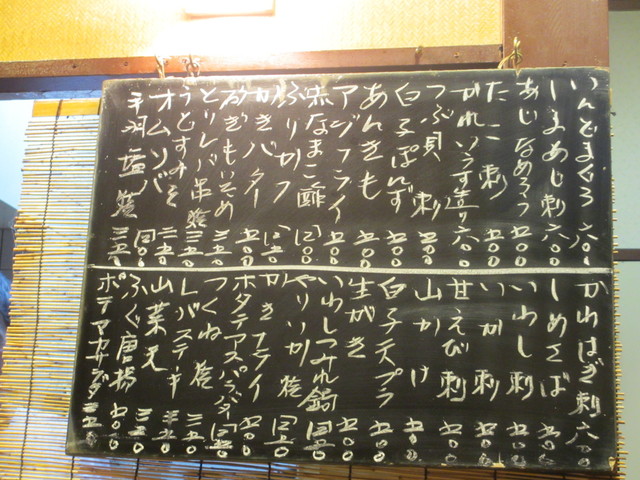 いんどまぐろ 六〇〇
しまあじ刺 六〇〇
あじなめろう 五〇〇
たこ刺 五〇〇
かれいうす造り 六〇〇
つぶ貝刺 五〇〇
白子ぽんず 五〇〇
あんきも 五〇〇
アジフライ 五〇〇
赤なまこ酢 四〇〇
ぶりカツ 四五〇
かきバター 五〇〇
とりレバ串焼 三五〇
うどすみそ 三五〇
オムソバ 四〇〇
手羽塩焼 三五〇
かわはぎ刺 六〇〇
しめさば 五〇〇
いわし刺 五〇〇
いか刺 五〇〇
甘えび刺 五〇〇
山かけ 五〇〇
白子天プラ 五〇〇
生がき 五〇〇
いわしつみれ鍋 四五〇
やりいか焼 四五〇
かきフライ 五〇〇
ホタテアスパラバター 四五〇
つくね焼 三五〇
レバステーキ 三五〇
山菜天 三五〇
ふぐ唐揚 五〇〇
ポテマカサラダ 三五〇